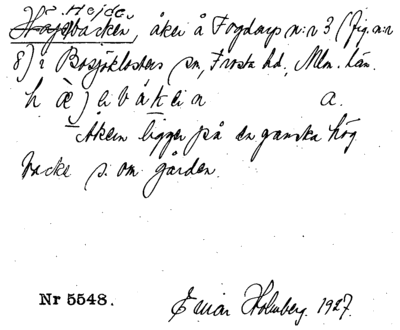 H. Höjde
Höjsbacken, åker å Fogdarps n:r 3 (fig. a:r
8) i Bosjöklosters sn, Frosta hd, Mlm. län.
a.
Åkern ligger på en ganska hög
backe s. om gården.
Nr 5548.
Einar Holmberg. 1927.